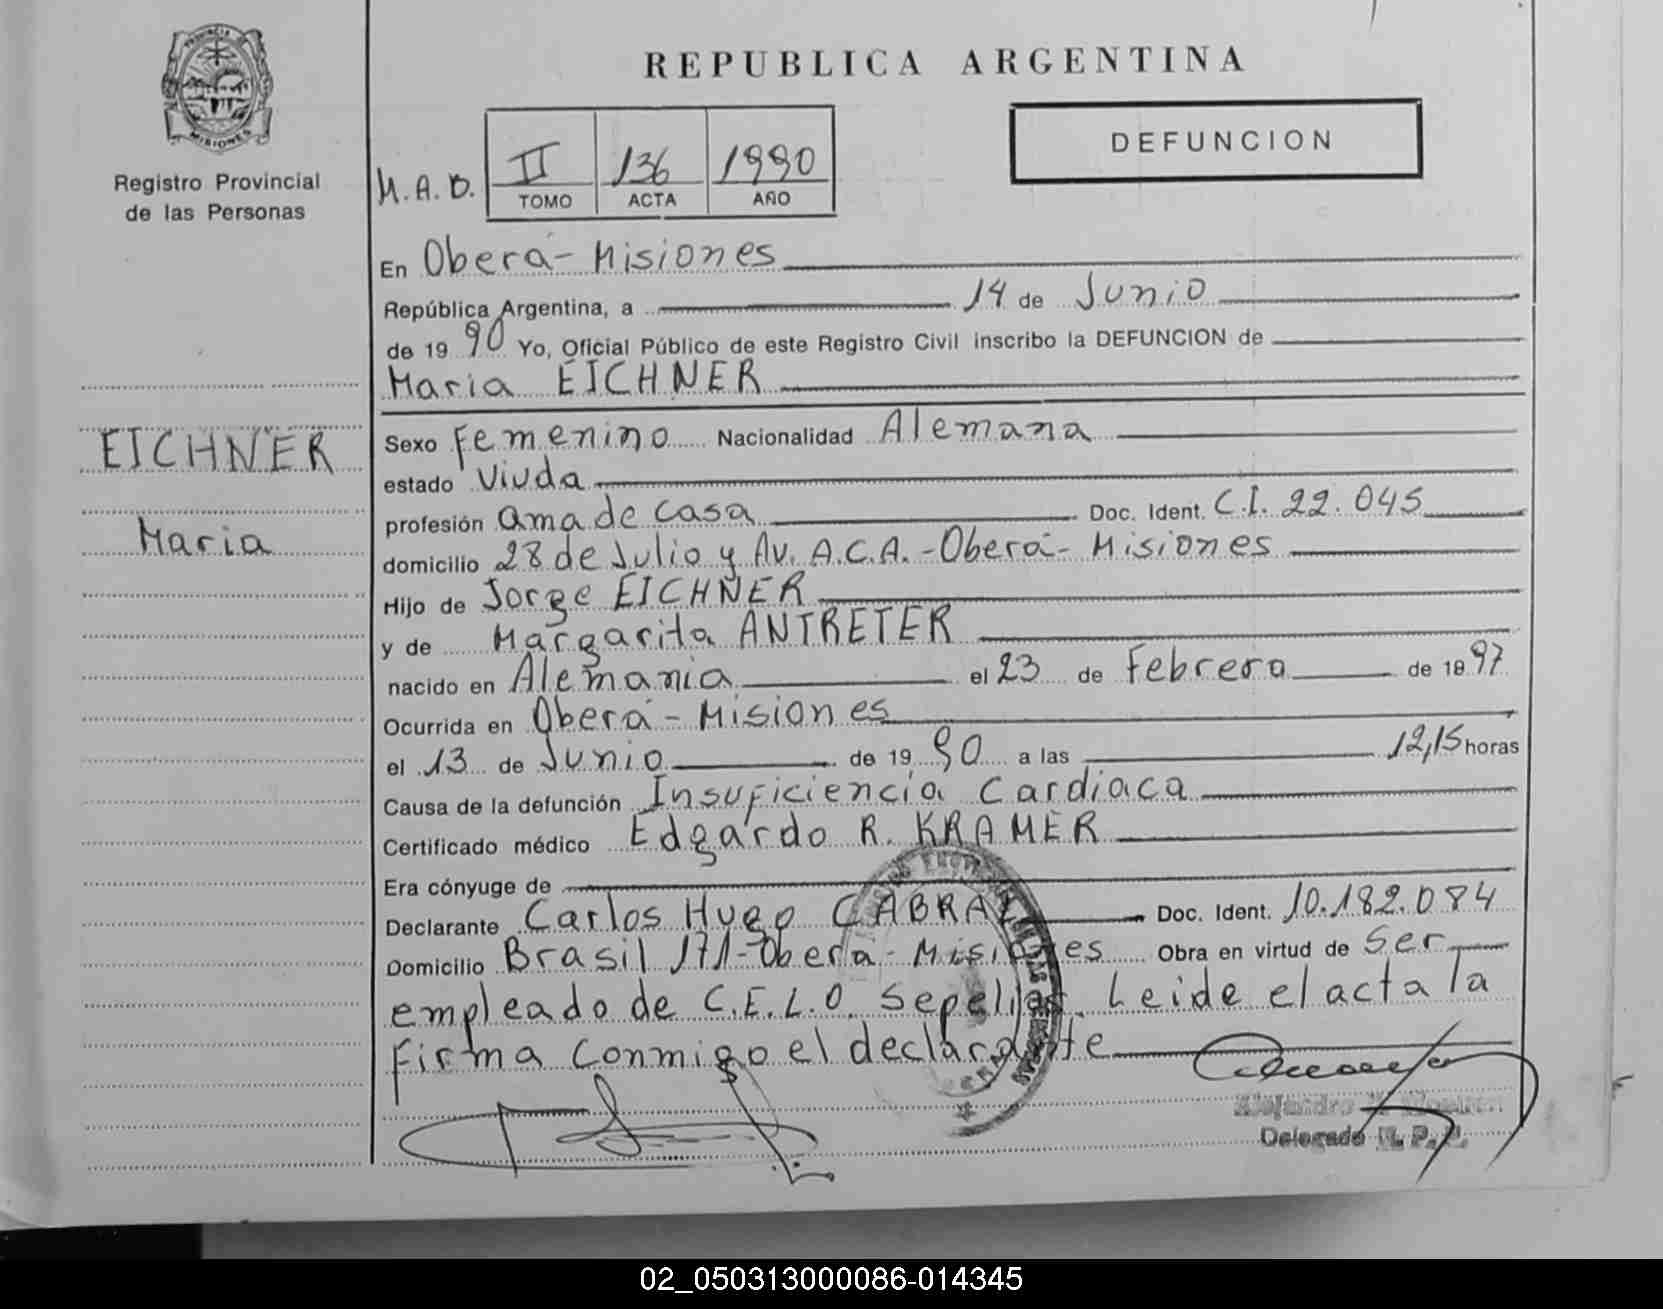 PROVINCIA DE
MISIONES
Registro Provincial
de las Personas
EICHNER
Maria
REPUBLICA ARGENTINA
DEFUNCION
M.A.D.
II 136 1990
TOMO ACTA AÑO
En Oberá - Misiones
República Argentina, a 14 de Junio
de 19 90 Yo, Oficial Público de este Registro Civil inscribo la DEFUNCION de
Maria EICHNER
Sexo Femenino Nacionalidad Alemana
estado Viuda
profesión ama de casa Doc. Ident. C.I. 22.045
domicilio 28 de Julio y Av. A.C.A. - Oberá - Misiones
Hijo de Jorge EICHNER
y de Margarita ANTRETER
nacido en Alemania el 23 de Febrero de 18 97
Ocurrida en Oberá - Misiones
el 13 de Junio de 19 90 a las 12,15 horas
Causa de la defunción Insuficiencia Cardiaca
Certificado médico Edgardo R. KRAMER
Era cónyuge de
Declarante Carlos Hugo CABRAL Doc. Ident. 10.182.084
Domicilio Brasil 171 - Oberá - Misiones Obra en virtud de Ser
empleado de C.E.L.O. Sepelios. Leide el acta la
firma conmigo el declarante
Alejandro
Delegado R. P. P.
02_050313000086-014345